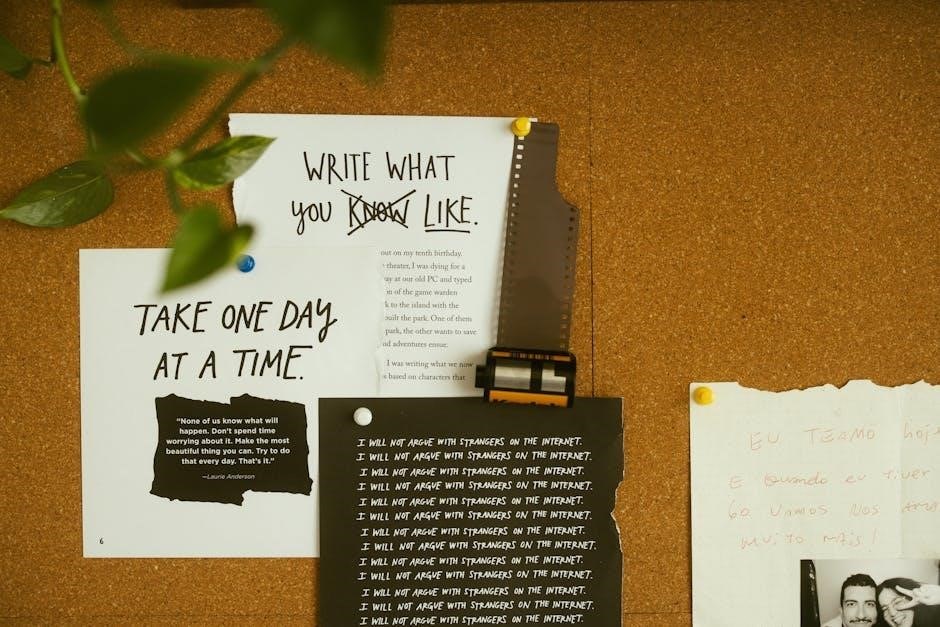 WRITE WHAT
YOU KNOW LIKE.
out on my tenth birthday.
theater, I was dying for a
ay at our old PC and typed
on of the game warden
k to the island with the
built the park. One of them
park, the other wants to save
nd adventures ensue.
I was writing what we now
s based on characters that
TAKE ONE DAY
AT A TIME.
“None of us know what will
happen. Don’t spend time
worrying about it. Make the most
beautiful thing you can. Try to do
that every day. That’s it.”
—Laurie Anderson
6
I WILL NOT ARGUE WITH STRANGERS ON THE INTERNET.
I WILL NOT ARGUE WITH STRANGERS ON THE INTERNET.
I WILL NOT ARGUE WITH STRANGERS ON THE INTERNET.
I WILL NOT ARGUE WITH STRANGERS ON THE INTERNET.
I WILL NOT ARGUE WITH STRANGERS ON THE INTERNET.
I WILL NOT ARGUE WITH STRANGERS ON THE INTERNET.
I WILL NOT ARGUE WITH STRANGERS ON THE INTERNET.
I WILL NOT ARGUE WITH STRANGERS ON THE INTERNET.
I WILL NOT ARGUE WITH STRANGERS ON THE INTERNET.
I WILL NOT ARGUE WITH STRANGERS ON THE INTERNET.
I WILL NOT ARGUE WITH STRANGERS ON THE INTERNET.
I WILL NOT ARGUE WITH STRANGERS ON THE INTERNET.
I WILL NOT ARGUE WITH STRANGERS ON THE INTERNET.
EU TE AMO hoje
E Quando eu tiver
60 VAMOS NOS AMA
MUITO MAIS!